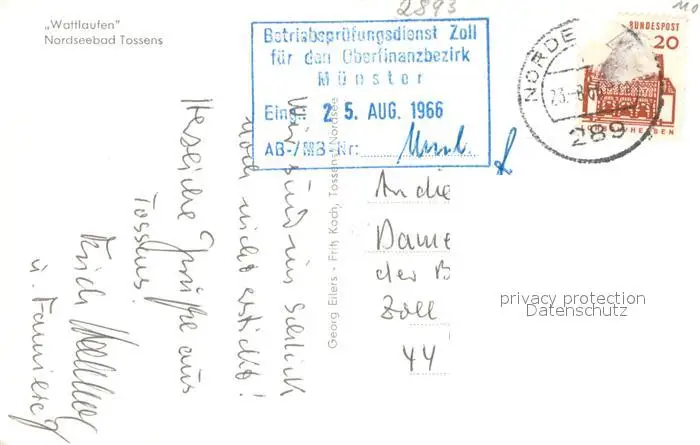 2893
„Wattlaufen"
Nordseebad Tossens
Betriebsprüfungsdienst Zoll
für den Oberfinanzbezirk
Münster
Eing.: 25. AUG. 1966
AB-/MB-Nr:
BUNDESPOST
20
NORDE
23.-8.6
289
Georg Eilers - Fritz Koch, Tossens/Nordsee
Wir sind im Schlick
noch nicht erstickt!
Herzliche Grüße aus
Tossens.
Erich
u. Familie
An die
Dame
der B
Zoll
44
privacy protection
Datenschutz